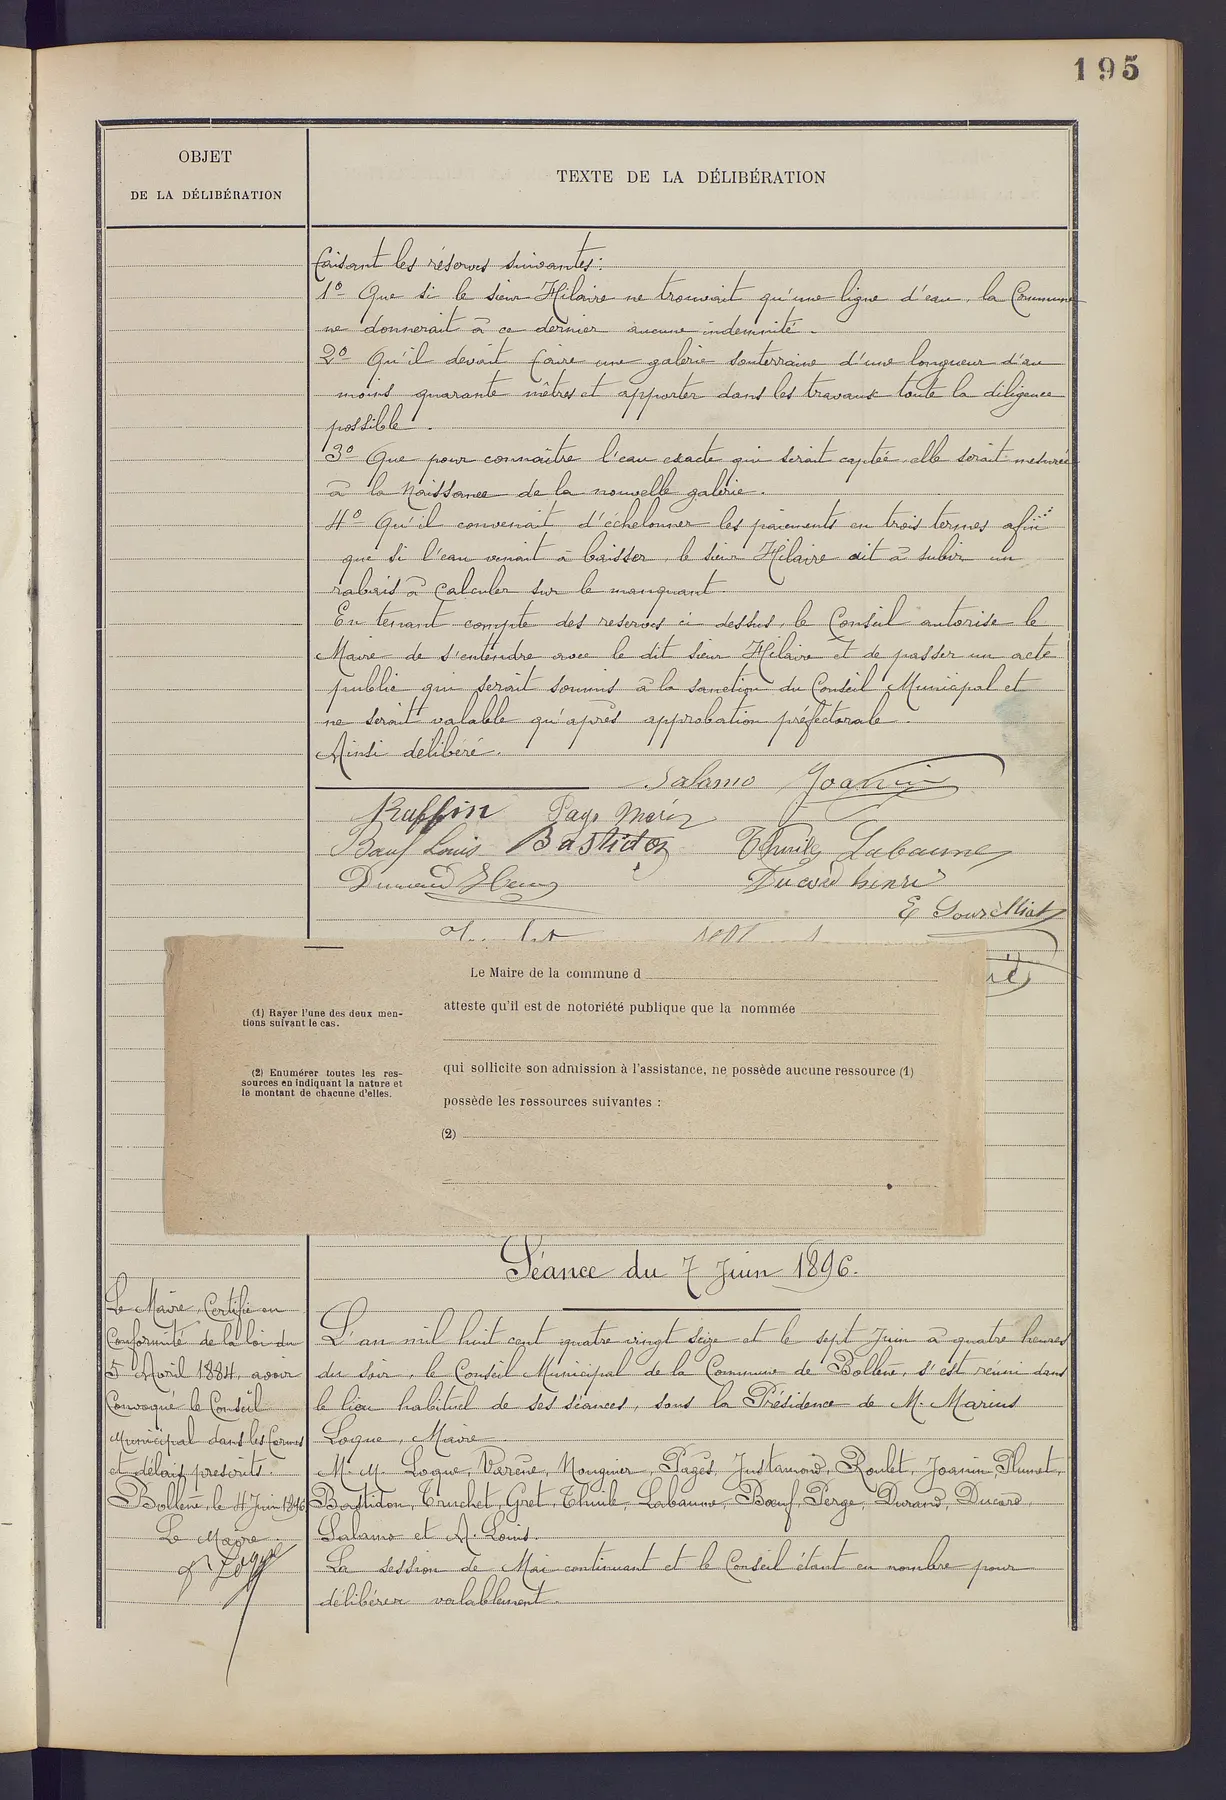 195
OBJET
DE LA DÉLIBÉRATION
TEXTE DE LA DÉLIBÉRATION
faisant les réserves suivantes :
1º Que si le sieur Hilaire ne trouvait qu'une ligne d'eau, la Commune
ne donnerait à ce dernier aucune indemnité.
2º Qu'il devait faire une galerie souterraine d'une longueur d'au
moins quarante mètres et apporter dans les travaux toute la diligence
possible.
3º Que pour connaître l'eau exacte qui serait captée, elle serait mesurée
à la Naissance de la nouvelle galerie.
4º Qu'il convenait d'échelonner les paiements en trois termes afin
que si l'eau venait à baisser, le sieur Hilaire ait à subir un
rabais à calculer sur le manquant.
En tenant compte des reserves ci dessus, le Conseil autorise le
Maire de s'entendre avec le dit sieur Hilaire et de passer un acte
public qui serait soumis à la sanction du Conseil Municipal et
ne serait valable qu'après approbation préfectorale.
Ainsi délibéré.
Salamo Joannin
Ruffin Pagès
Bœuf Louis Bastidon Thuile Labaume
Durand Ducord henri
E
Le Maire de la commune d
atteste qu'il est de notoriété publique que la nommée
(1) Rayer l'une des deux men-
tions suivant le cas.
qui sollicite son admission à l'assistance, ne possède aucune ressource (1)
(2) Enumérer toutes les res-
sources en indiquant la nature et
le montant de chacune d'elles.
possède les ressources suivantes :
(2)
Séance du 7 Juin 1896.
Le Maire, Certifie en
Conformité de la loi du
5 Avril 1884, avoir
Convoqué le Conseil
Municipal dans les formes
et délais prescrits.
Bollène, le 4 Juin 1896
Le Maire.
Loque
L'an mil huit cent quatre vingt seize et le sept Juin à quatre heures
du soir, le Conseil Municipal de la Commune de Bollène, s'est réuni dans
le lieu habituel de ses séances, sous la Présidence de M. Marius
Loque, Maire.
M. M. Loque, Varène, Nouguier, Pagès, Justamond, Roulet, Joannin, Plumet,
Bastidon, Truchet, Gret, Thuile, Labaume, Bœuf, Perge, Durand, Ducord,
Salamo et A. Louis.
La session de Mai continuant et le Conseil étant en nombre pour
délibérer valablement.